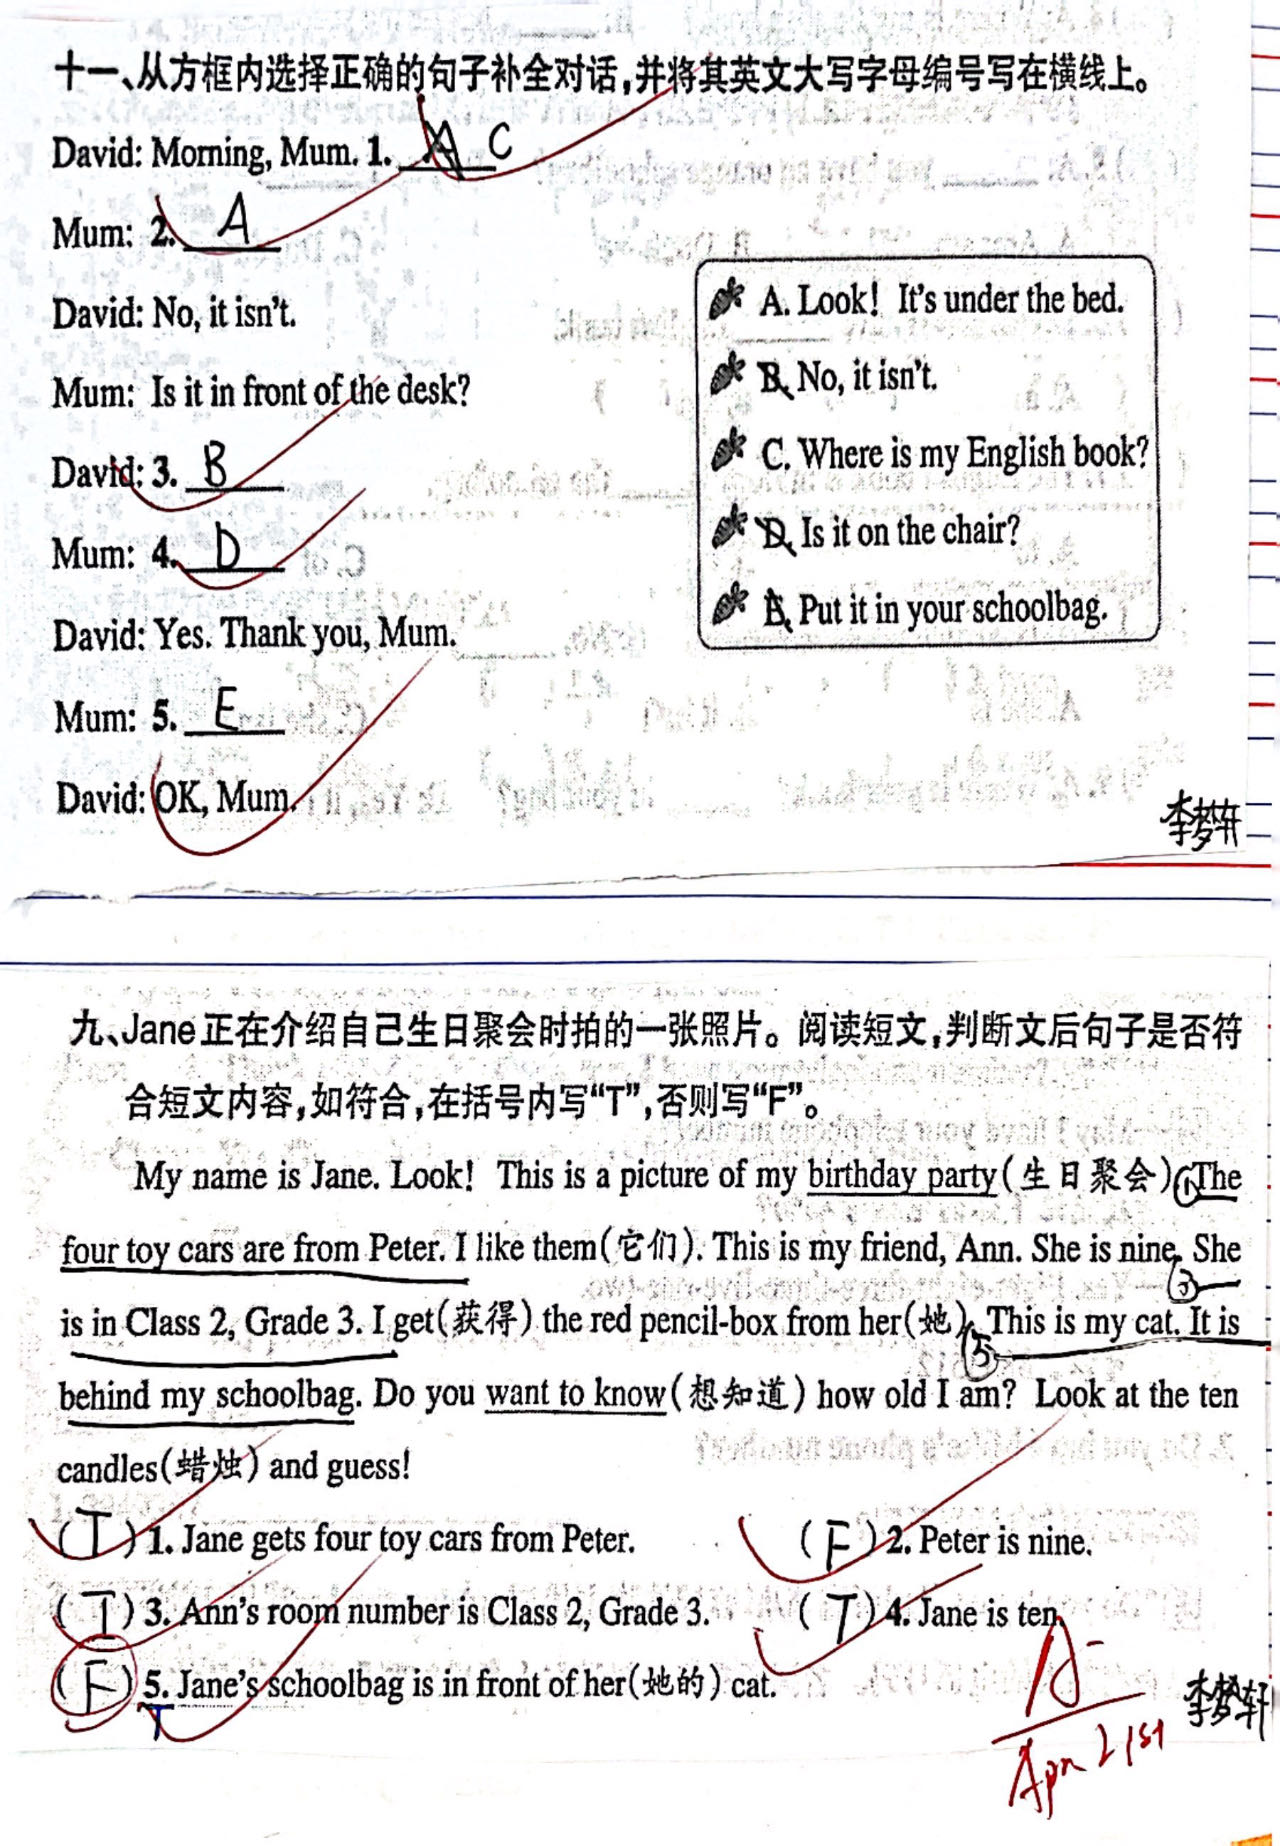 十一、从方框内选择正确的句子补全对话,并将其英文大写字母编号写在横线上。
David: Morning, Mum. 1. C
Mum: 2. A
David: No, it isn't.
Mum: Is it in front of the desk?
David: 3. B
Mum: 4. D
David: Yes. Thank you, Mum.
Mum: 5. E
David: OK, Mum.
A. Look! It's under the bed.
B. No, it isn't.
C. Where is my English book?
D. Is it on the chair?
E. Put it in your schoolbag.
李梦轩
九、Jane正在介绍自己生日聚会时拍的一张照片。阅读短文,判断文后句子是否符
合短文内容,如符合,在括号内写“T”,否则写“F”。
My name is Jane. Look! This is a picture of my birthday party(生日聚会). ① The
four toy cars are from Peter. I like them(它们). This is my friend, Ann. She is nine. ③ She
is in Class 2, Grade 3. I get(获得) the red pencil-box from her(她). ⑤ This is my cat. It is
behind my schoolbag. Do you want to know(想知道) how old I am? Look at the ten
candles(蜡烛) and guess!
(T) 1. Jane gets four toy cars from Peter.
(F) 2. Peter is nine.
(T) 3. Ann's room number is Class 2, Grade 3.
(T) 4. Jane is ten.
(F) 5. Jane's schoolbag is in front of her(她的) cat.
T
A-
Apr 21st
李梦轩